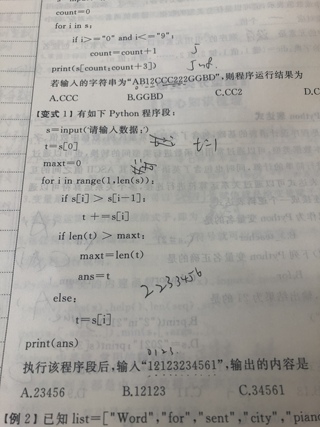 count=0
for i in s:
if i>="0" and i<="9":
count=count+1
print(s[count:count+3])
若输入的字符串为"AB12CCC222GGBD",则程序运行结果为
A.CCC B.GGBD C.CC2 D.C
【变式1】有如下 Python 程序段:
s=input('请输入数据:')
t=s[0] t=1
maxt=0
for i in range(1,len(s)):
if s[i] > s[i-1]:
t +=s[i]
if len(t) > maxt:
maxt=len(t)
ans=t
2233456
else:
t=s[i]
print(ans)
0123
执行该程序段后,输入"12123234561",输出的内容是
A.23456 B.12123 C.34561
【例2】已知 list=["Word","for","sent","city","piano